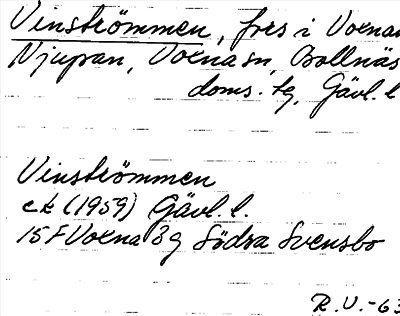 Vinströmmen, fors i Voxnan
Njupan, Voxna sn, Bollnäs
doms. tg, Gävl. l
Vinströmmen
ek (1959) Gävl. l.
15F Voxna 3g Södra Svensbo
R.U.-63